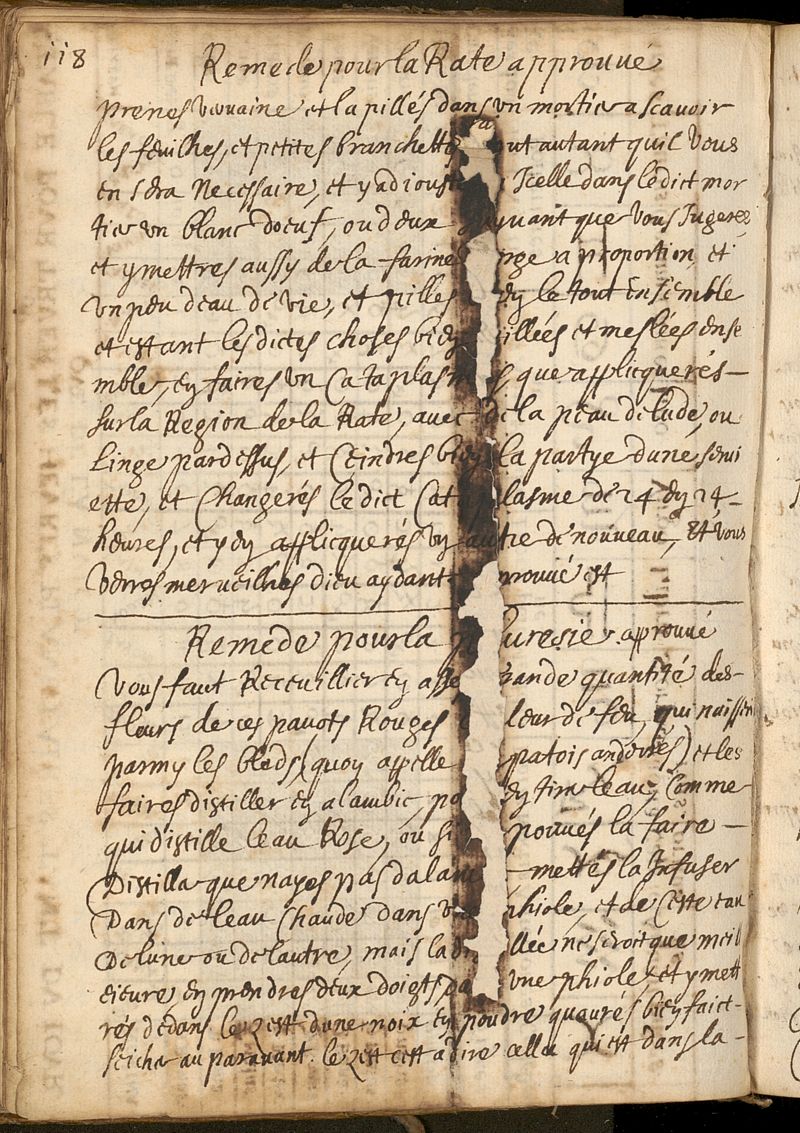 118
Remede pour la Rate approuué
prenes veruaine et la pillés dans un mortier a scauoir
les feuilhes, et petites branchettes out autant quil vous
en sera Necessaire, et y adiouste Icelle dans le dict mor
tier un blanc doeuf, ou deux suyuant que vous Iugeres
et y mettres aussy de la farine orge a proportion, et
un peu deau de vie, et pilles en le tout ensemble
et estant les dictes choses bien illées et meslées ense
mble, en faires un Cataplasm que applicquerés
sur la Region de la Rate, auec de la peau delude, ou
Linge pardessus, et Ceindres bien la partye dune serui
ette, et Changerés le dict Cataplasme de 24 en 24
heures, et y en applicquerés un autre de nouueau, Et vous
verres merueilhes dieu aydant rouué est
Remede pour la pl uresie approuué
Vous faut Receuillier en asse rande quantité des
fleurs de ces pauots Rouges leur de feu, qui naissen
parmy les bleds, (quon appelle patois ) et les
faires distiller en alambic, po en tirer leau, Comme
qui distille leau Rose, ou si pouués la faire
Distilla que nayes pas dalam mettés la Infuser
Dans de leau Chaude dans un phiole, et de Ceste eau
De lune ou de lautre, mais la di llée ne seroit que meil
eieure, en prendres deux doigts da une phiole, et y mett
rés dedans le zest dune noix en poudre quaurés bien faict
seicher au parauant. le zest cest a dire celle qui est dans la